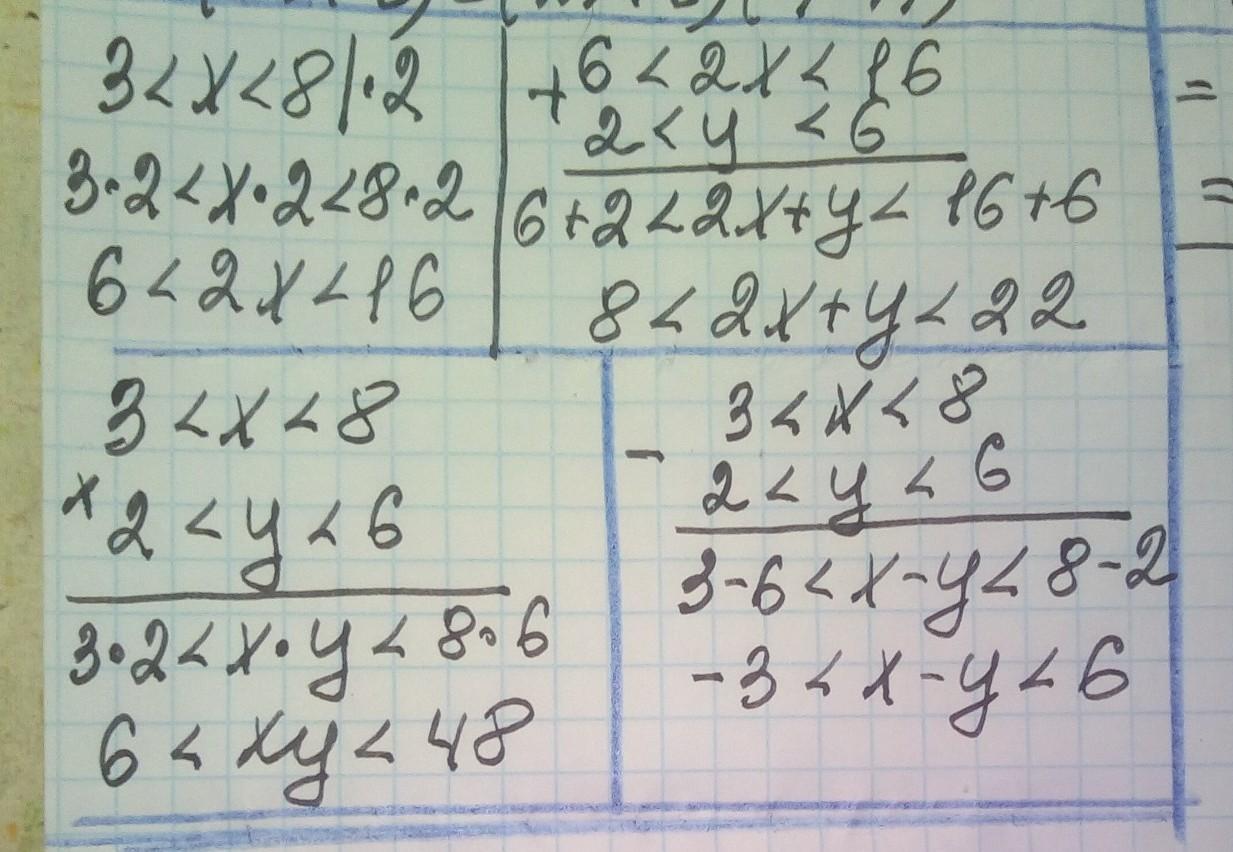 3 < x < 8 | · 2
3 · 2 < x · 2 < 8 · 2
6 < 2x < 16
+ 6 < 2x < 16
2 < y < 6
6 + 2 < 2x + y < 16 + 6
8 < 2x + y < 22
3 < x < 8
x 2 < y < 6
3 · 2 < x · y < 8 · 6
6 < xy < 48
3 < x < 8
-
2 < y < 6
3 - 6 < x - y < 8 - 2
-3 < x - y < 6
=
=